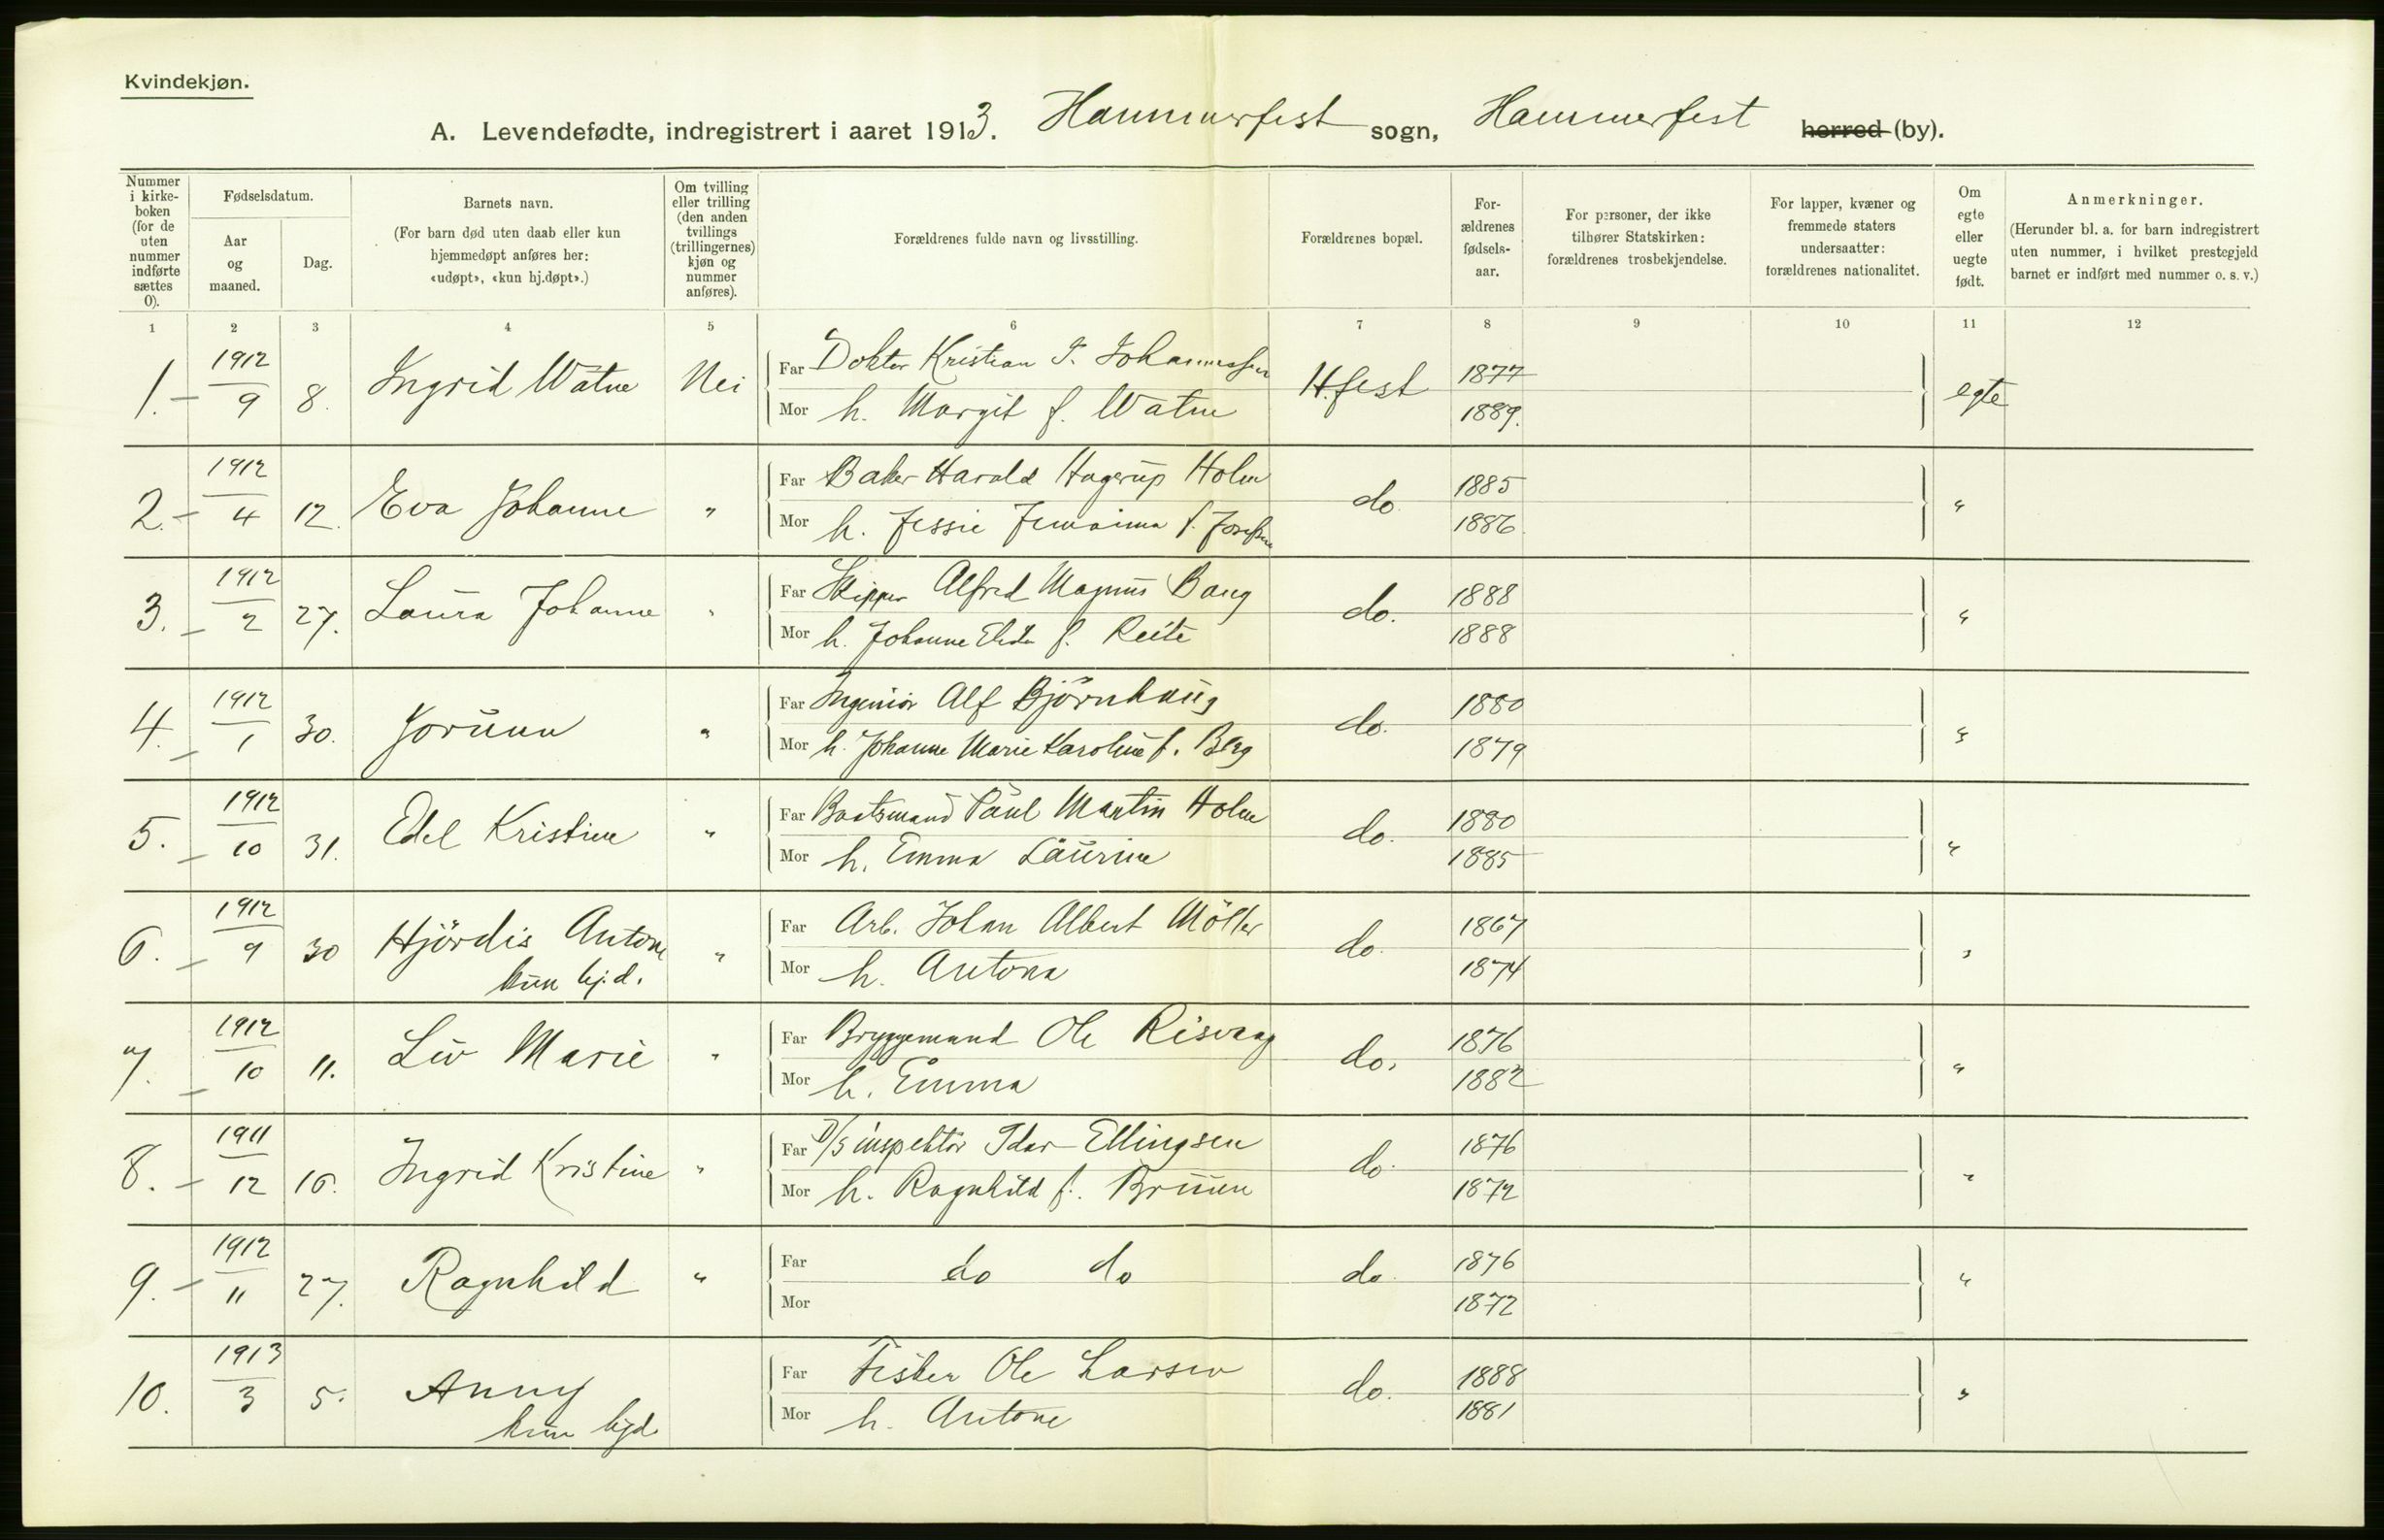 Kvindekjøn.
A. Levendefødte, indregistrert i aaret 1913. Hammerfest sogn, Hammerfest herred (by).
Nummer i kirke-boken (for de uten nummer indførte sættes 0).
Fødselsdatum.
Aar og maaned.
Dag.
Barnets navn.
(For barn død uten daab eller kun hjemmedøpt anføres her: «udøpt», «kun hj.døpt».)
Om tvilling eller trilling (den anden tvillings (trillingernes) kjøn og nummer anføres).
Forældrenes fulde navn og livsstilling.
Forældrenes bopæl.
For-ældrenes fødsels-aar.
For personer, der ikke tilhører Statskirken: forældrenes trosbekjendelse.
For lapper, kvæner og fremmede staters undersaatter: forældrenes nationalitet.
Om egte eller uegte født.
Anmerkninger.
(Herunder bl. a. for barn indregistrert uten nummer, i hvilket prestegjeld barnet er indført med nummer o. s. v.)
1 2 3 4 5 6 7 8 9 10 11 12
1. – 1912/9 8. Ingrid Watne Nei Far Doktor Kristian F. Johannessen H.fest 1877 egte
Mor h. Margit f. Watne 1889.
2. – 1912/4 12. Eva Johanne " Far Baker Harald Hagerup Holm do 1885 "
Mor h. Jessie Jemaima f. Josefsen 1886.
3. – 1912/2 27. Laura Johanne " Far Skipper Alfred Magnus Bang do. 1888 "
Mor h. Johanne f. Reite 1888
4. – 1912/1 30. Jorunn " Far Ingeniör Alf Björnhaug do. 1880 "
Mor h. Johanne Marie Karoline f. Berg 1879
5. – 1912/10 31. Edel Kristine " Far Baatsmand Paul Martin Holm do. 1880 "
Mor h. Emma Laurine 1885
6. – 1912/9 30 Hjördis Antone " Far Arb. Johan Albert Möller do. 1867 "
kun hj.d. Mor h. Antona 1874
7. – 1912/10 11. Liv Marie " Far Bryggemand Ole Risvaag do. 1876 "
Mor h. Emma 1882
8. – 1911/12 16. Ingrid Kristine " Far D/S inspektör Idar Ellingsen do. 1876 "
Mor h. Ragnhild f. Bruun 1872
9. – 1912/11 27. Ragnhild " Far do do do 1876 "
Mor 1872
10. 1913/3 5. Anny Far Fisker Ole Larsen do. 1888 "
kun hjd. Mor h. Antone 1881